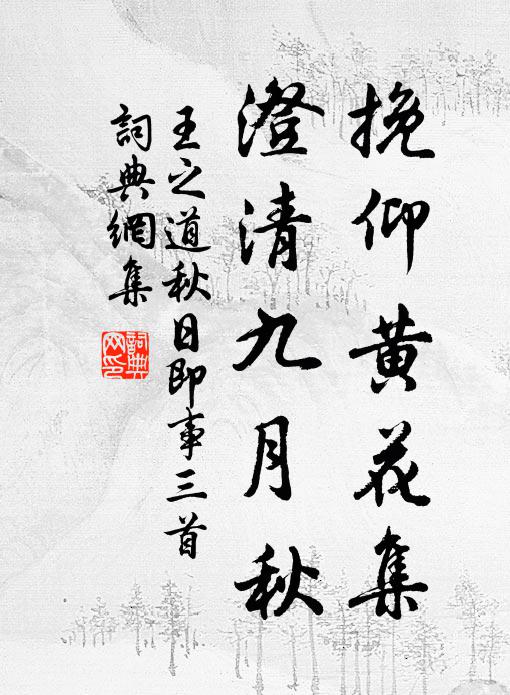 挽仰黄花集
澄清九月秋
王之道秋日即事三首
詞典網集
詞典網印